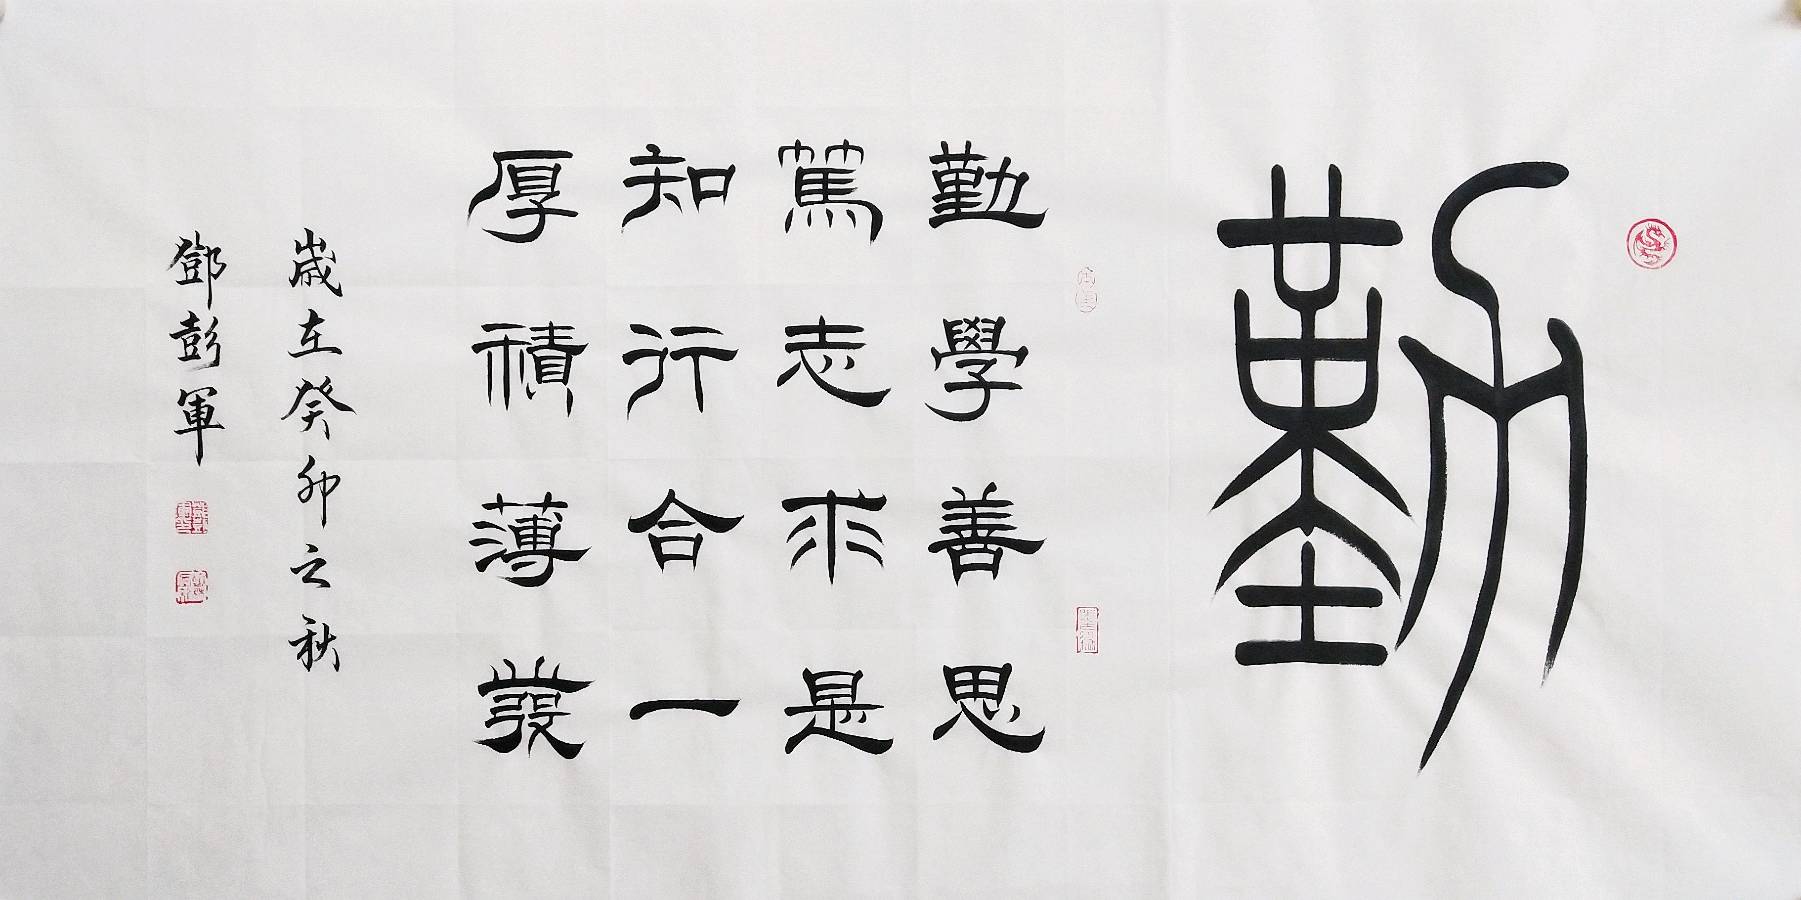 勤
勤學善思
篤志求是
知行合一
厚積薄發
歲在癸卯之秋
鄧彭軍